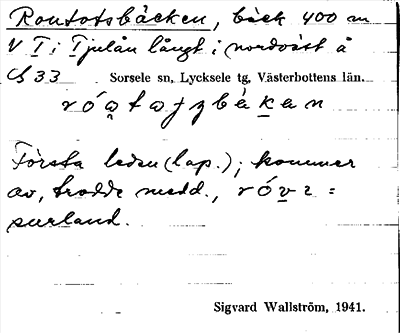 Routotsbäcken, bäck 400 m
V I i Tjulån långt i nordväst å
Cb 33 Sorsele sn, Lycksele tg, Västerbottens län.
Första leden (lap.); kommer
av, trodde medd., róvι =
surland.
Sigvard Wallström, 1941.